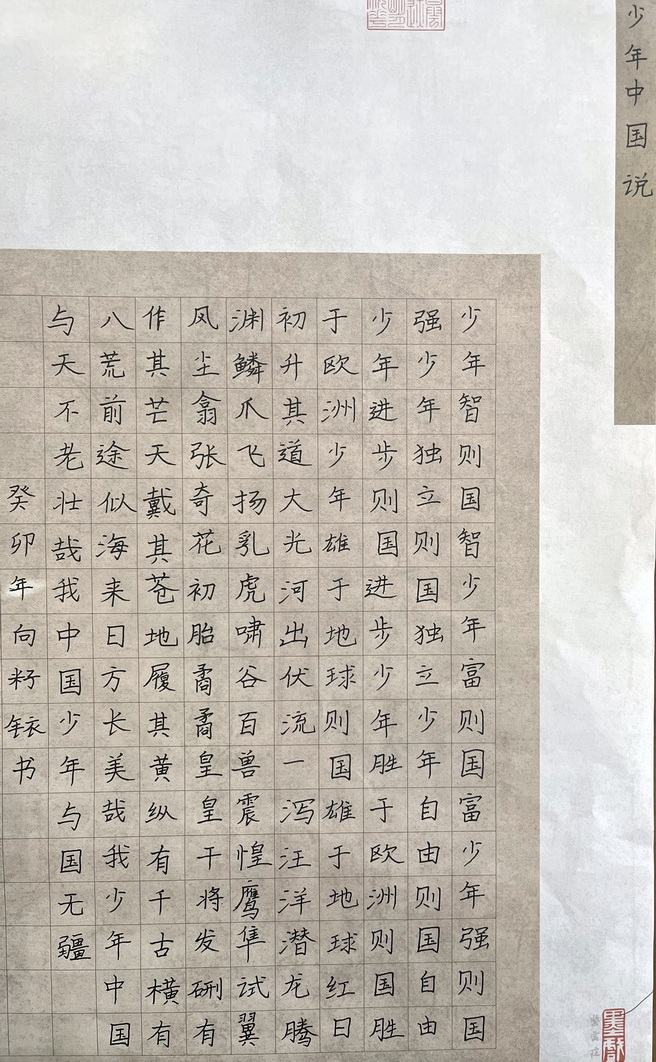 少年中国说
少年智则国智少年富则国富少年强则国
强少年独立则国独立少年自由则国自由
少年进步则国进步少年胜于欧洲则国胜
于欧洲少年雄于地球则国雄于地球红日
初升其道大光河出伏流一泻汪洋潜龙腾
渊鳞爪飞扬乳虎啸谷百兽震惶鹰隼试翼
凤尘翕张奇花初胎矞矞皇皇干将发硎有
作其芒天戴其苍地履其黄纵有千古横有
八荒前途似海来日方长美哉我少年中国
与天不老壮哉我中国少年与国无疆
癸卯年向籽铱书